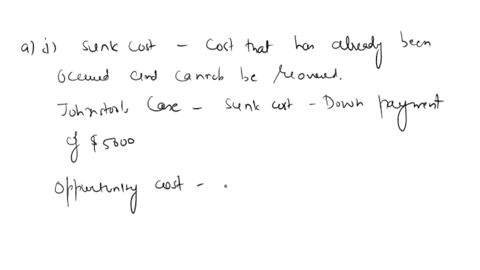 a) i) Sunk Cost - Cost that has already been
Occured and cannot be recovered.
Johnstons Case - Sunk cost - Down payment
of $5000
Opportunity cost -